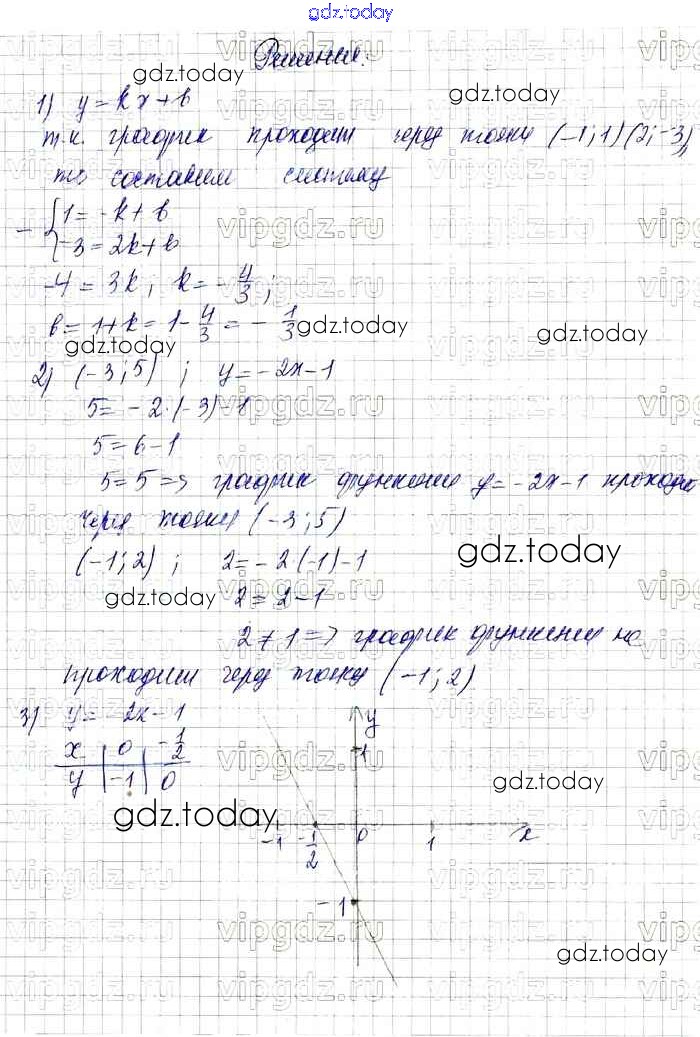 gdz.today
Решение.
1) y = kx + b
т.к. график проходит через точки (-1; 1) (2; -3),
то составим систему
- { 1 = -k + b
-3 = 2k + b
-4 = 3k; k = -4/3;
b = 1 + k = 1 - 4/3 = -1/3
2) (-3; 5) ; y = -2x - 1
5 = -2·(-3) - 1
5 = 6 - 1
5 = 5 => график функции y = -2x - 1 проходит
через точку (-3; 5)
(-1; 2) ; 2 = -2(-1) - 1
2 = 2 - 1
2 ≠ 1 => график функции не
проходит через точку (-1; 2)
3) y = -2x - 1
x | 0 | -1/2
y | -1 | 0
y
1
-1 -1/2 0 1 x
-1
gdz.today
gdz.today
gdz.today
gdz.today
gdz.today
gdz.today
gdz.today
gdz.today
gdz.today
gdz.today
vipgdz.ru